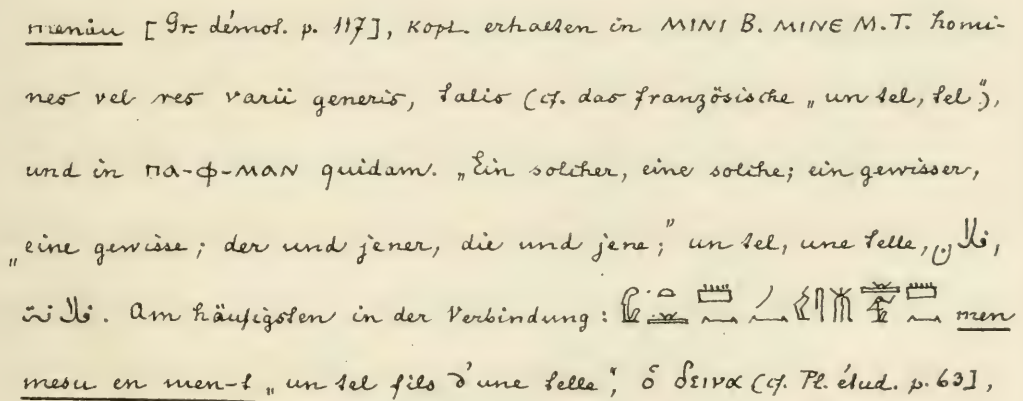 menáu [Gr. démot. p. 117], kopt. erhalten in ⲘⲒⲚⲒ B. ⲘⲒⲚⲈ M.T. homi-
nes vel res varii generis, talis (cf. das französische „un tel, tel"),
und in ⲠⲀ-Ⲫ-ⲘⲀⲚ quidam. „Ein solcher, eine solche; ein gewisser,
„eine gewisse; der und jener, die und jene;" un tel, une telle, فلان,
فلانت. Am häufigsten in der Verbindung: men
mesu en men-t „un tel fils d'une telle", ὁ δεινα (cf. Pl. étud. p. 63],